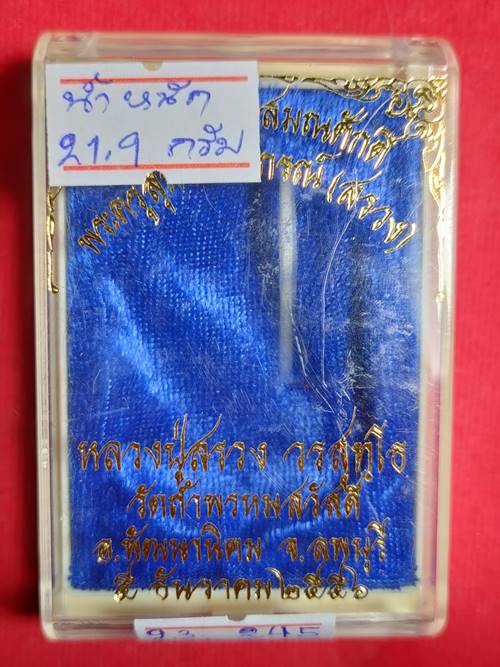 น้ำหนัก
21.9 กรัม
สมณศักดิ์
(สรวง)
หลวงปู่สรวง วรสุทฺโธ
วัดถ้ำพรหมสวัสดิ์
อ.พัฒนานิคม จ.ลพบุรี
๕ ธันวาคม๒๕๕๖